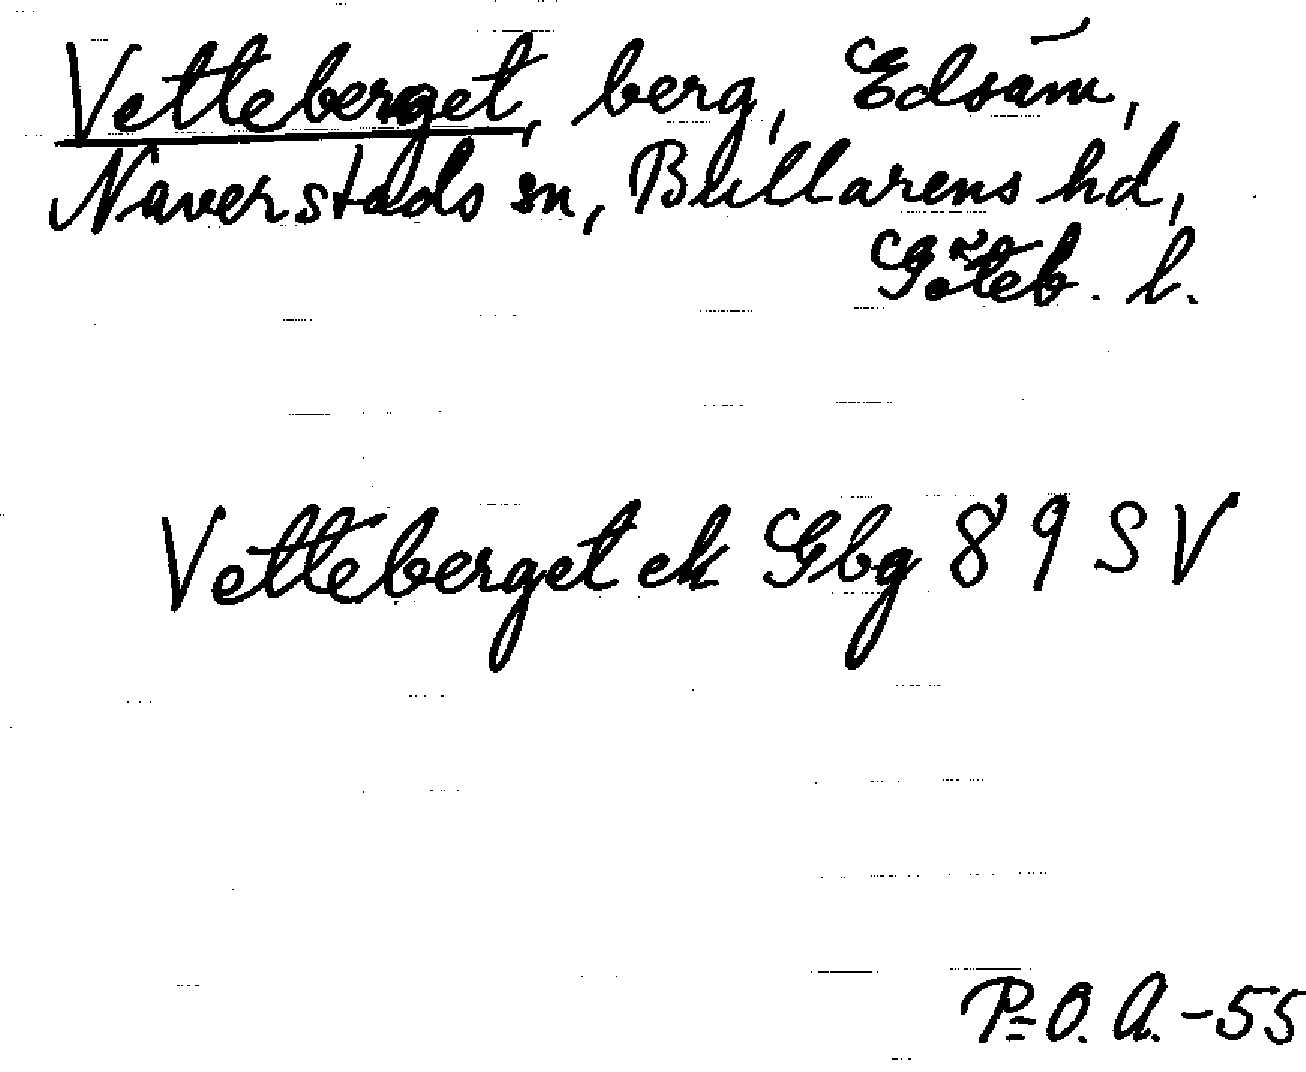 Vetteberget, berg, Edsäm,
Naverstads sn, Bullarens hd,
Göteb. l.
Vetteberget ek Gbg 89 SV
P-O. A. -55